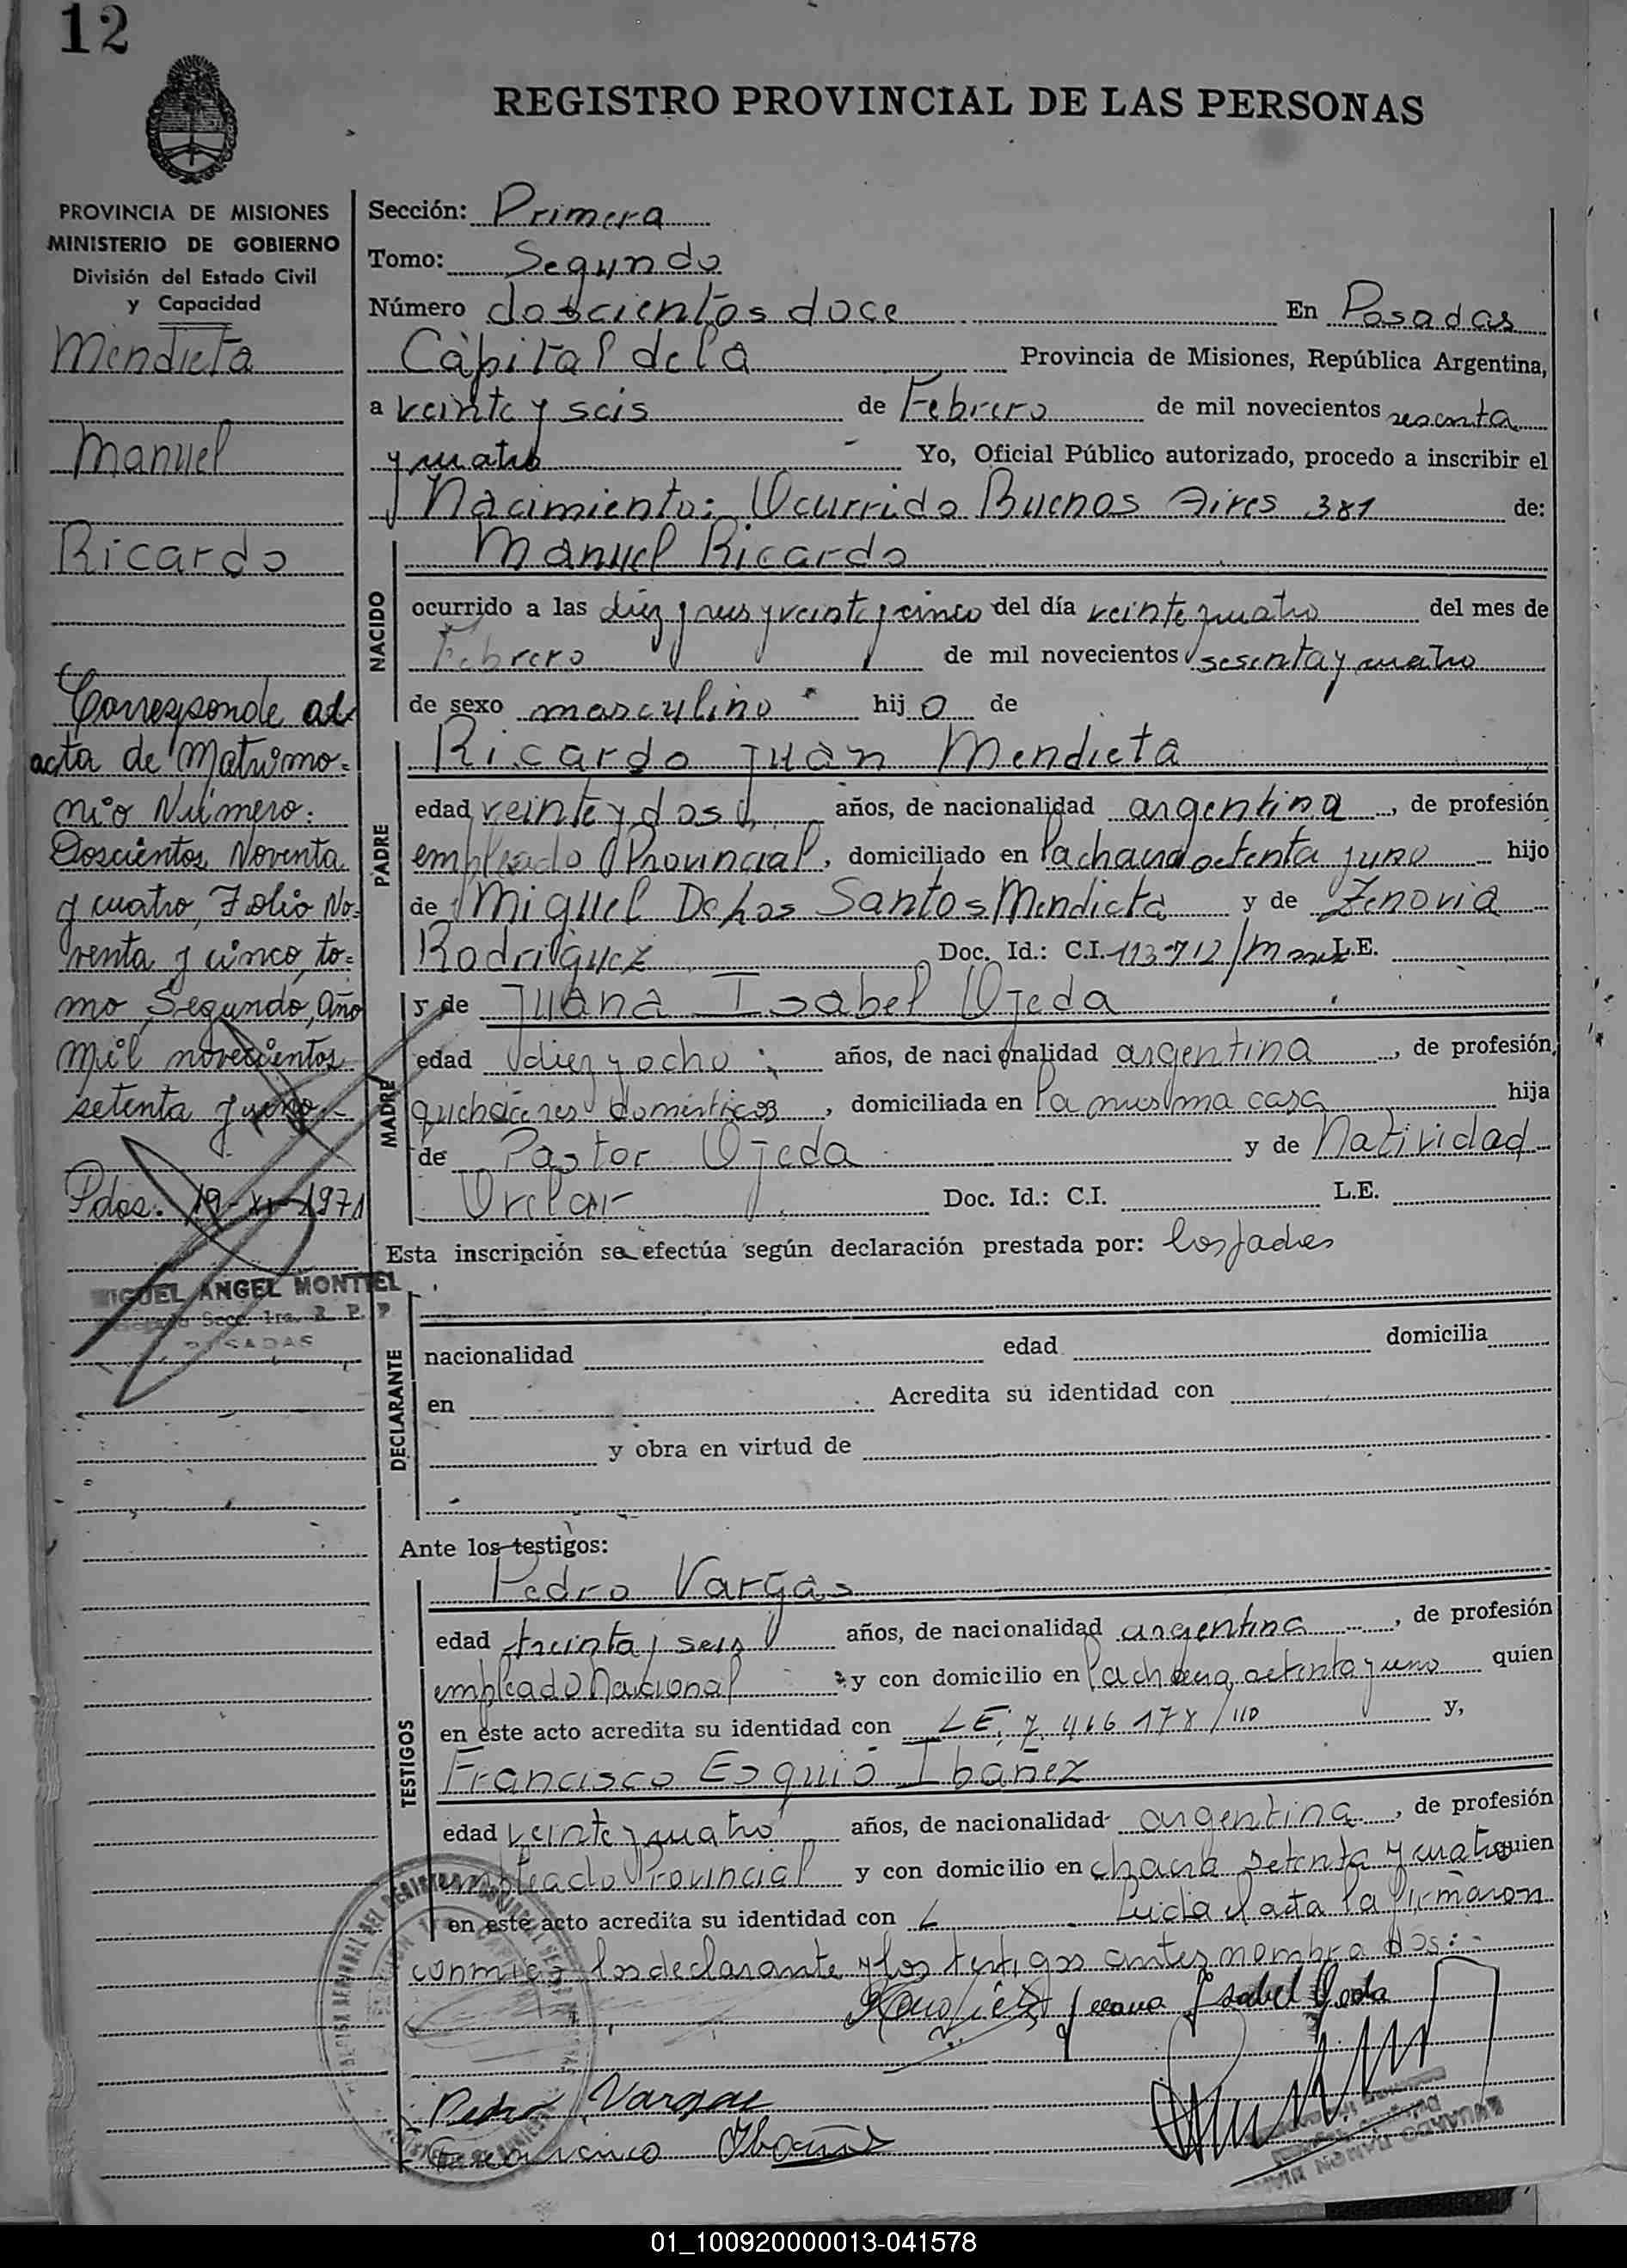 12
REGISTRO PROVINCIAL DE LAS PERSONAS
PROVINCIA DE MISIONES
MINISTERIO DE GOBIERNO
División del Estado Civil
y Capacidad
Mendieta
Manuel
Ricardo
Corresponde al
acta de Matrimo=
nio Número:
Doscientos Noventa
y cuatro, Folio No=
venta y cinco, to=
mo Segundo, año
mil novecientos
setenta y uno.-
Pdas. 19-XI-1971
MIGUEL ANGEL MONTIEL
Secc. 1ra. R. P. P
POSADAS
Sección: Primera
Tomo: Segundo
Número doscientos doce En Posadas
Capital de la Provincia de Misiones, República Argentina,
a veinte y seis de Febrero de mil novecientos sesenta
y cuatro Yo, Oficial Público autorizado, procedo a inscribir el
Nacimiento: Ocurrido Buenos Aires 381 de:
NACIDO
Manuel Ricardo
ocurrido a las diez y seis y veinte y cinco del día veinte y cuatro del mes de
Febrero de mil novecientos sesenta y cuatro
de sexo masculino hijo de
PADRE
Ricardo Juan Mendieta
edad veinte y dos años, de nacionalidad argentina, de profesión
empleado Provincial, domiciliado en la chacra ochenta y uno hijo
de Miguel De Los Santos Mendieta y de Zenovia
Rodriguez Doc. Id.: C.I. 113-712/ L.E.
MADRE
y de Juana Isabel Ojeda
edad diez y ocho años, de nacionalidad argentina, de profesión
quehaceres domésticos, domiciliada en la misma casa hija
de Pastor Ojeda y de Natividad
Doc. Id.: C.I. L.E.
Esta inscripción se efectúa según declaración prestada por: los padres
DECLARANTE
nacionalidad edad domicilia
en Acredita su identidad con
y obra en virtud de
Ante los testigos:
TESTIGOS
Pedro Vargas
edad treinta y seis años, de nacionalidad argentina, de profesión
empleado Nacional y con domicilio en la chacra ochenta y uno quien
en este acto acredita su identidad con L E. 7. 466 178 / y,
Francisco Esquió Ibañez
edad veinte y cuatro años, de nacionalidad argentina, de profesión
empleado Provincial y con domicilio en chacra setenta y cuatro quien
en este acto acredita su identidad con L Leida el acta la firmaron
conmigo los declarante y los testigos antes nombrados:
Juana Isabel Ojeda
Pedro Vargas
Francisco Ibañez
01_100920000013-041578